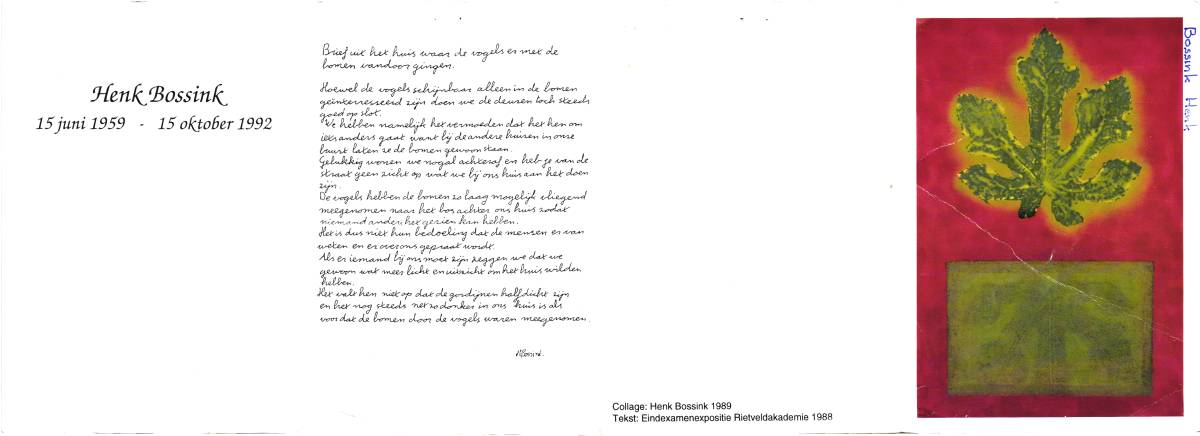 Henk Bossink
15 juni 1959 - 15 oktober 1992
Brief uit het huis waar de vogels er met de
bomen vandoor gingen.
Hoewel de vogels schijnbaar alleen in de bomen
geïnteresseerd zijn doen we de deuren toch steeds
goed op slot.
We hebben namelijk het vermoeden dat het hen om
iets anders gaat want bij de andere huizen in onze
buurt laten ze de bomen gewoon staan.
Gelukkig wonen we nogal achteraf en heb je van de
straat geen zicht op wat we bij ons huis aan het doen
zijn.
De vogels hebben de bomen zo laag mogelijk vliegend
meegenomen naar het bos achter ons huis zodat
niemand anders het gezien kan hebben.
Het is dus niet hun bedoeling dat de mensen er van
weten en er over ons gepraat wordt.
Als er iemand bij ons moet zijn zeggen we dat we
gewoon wat meer licht en uitzicht om het huis wilden
hebben.
Het valt hen niet op dat de gordijnen half dicht zijn
en het nog steeds net zo donker in ons huis is als
voordat de bomen door de vogels waren meegenomen.
HBossink.
Collage: Henk Bossink 1989
Tekst: Eindexamenexpositie Rietveldakademie 1988
Bossink Henk